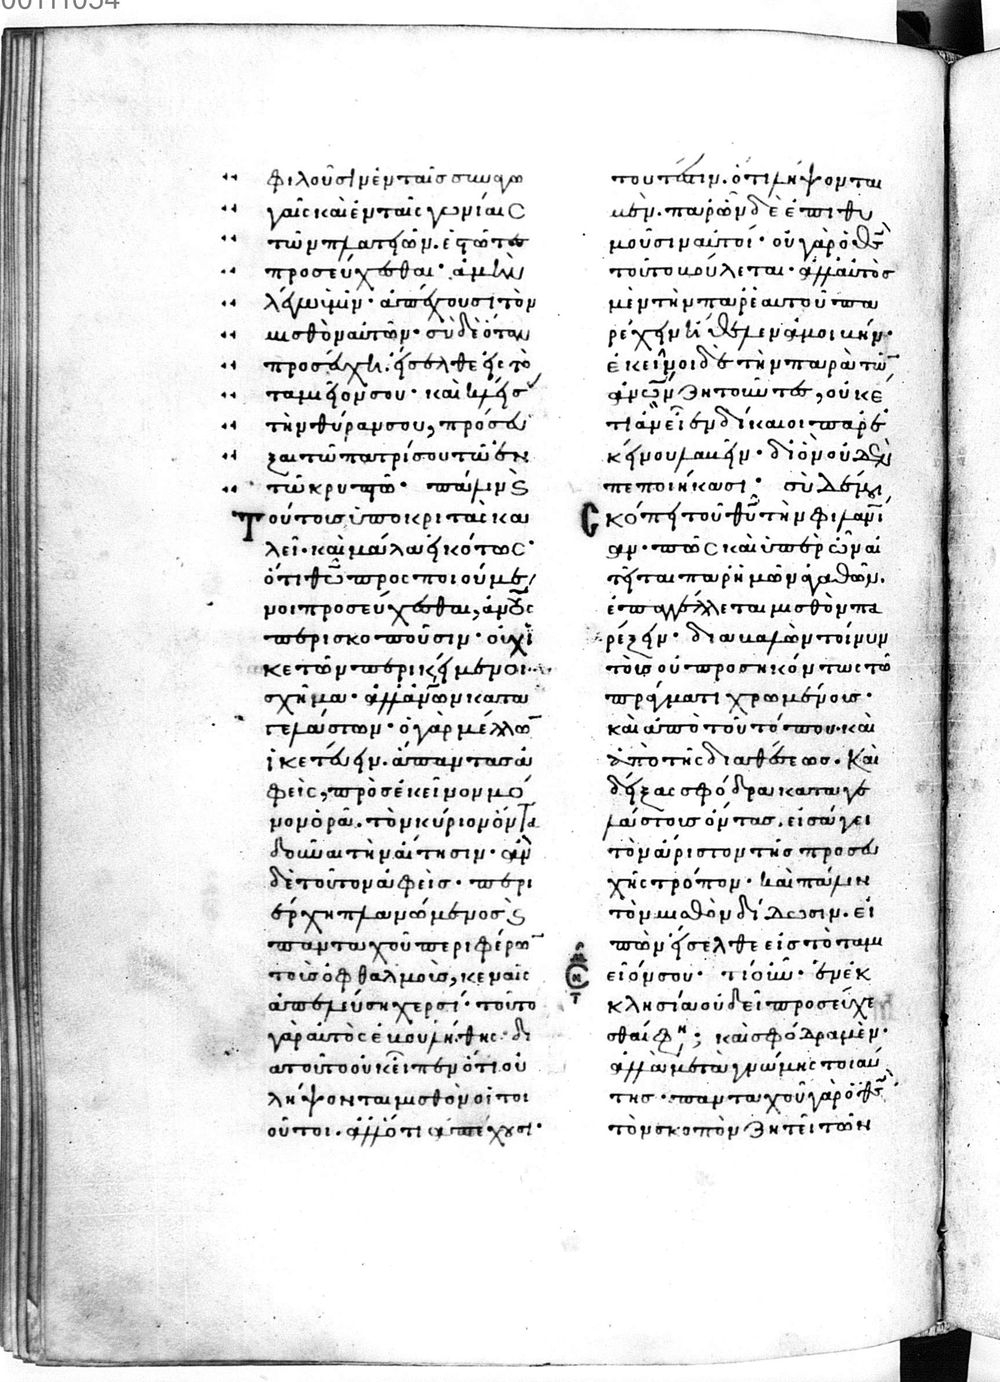 00111054
φιλοῦσιν ἐν ταῖς συναγω
γαῖς καὶ ἐν ταῖς γωνίαις
τῶν πλατειῶν ἑστῶτες
προσεύχεσθαι· ἀμὴν
λέγω ὑμῖν· ἀπέχουσι τὸν
μισθὸν αὐτῶν· σὺ δὲ ὅταν
προσεύχῃ, εἴσελθε εἰς τὸ
ταμιεῖόν σου· καὶ κλείσ
τὴν θύραν σου, πρόσευ
ξαι τῶ πατρί σου τῶ ἐν
τῶ κρυπτῶ· πάλιν
Τούτους ὑποκριτὰς κα
λεῖ· καὶ μάλα εἰκότως·
ὅτι θεῶ προσποιούμε
νοι προσεύχεσθαι, ἀνους
περισκοποῦσιν· οὐχ ἱ
κετῶν περικείμενοι
σχῆμα· ἀλλὰ ἀνων κατα
γελάστων· ὁ γὰρ μέλλων
ἱκετεύειν· ἅπαντας ἀ
φεὶς, πρὸς ἐκεῖνον μό
νον ὁρᾶ· τὸν κύριον ὄντα
δοῦναι τὴν αἴτησιν· ἂν
δὲ τοῦτον ἀφεὶς· περι
έρχῃ πλανώμενος
πανταχοῦ περιφέρων
τοὺς ὀφθαλμοὺς, κεναῖς
ἀπελεύσῃ χερσί· τοῦτο
γὰρ αὐτὸς ἐβουλήθης· δι
ὰ τοῦτο οὐκ εἶπεν ὅτι οὐ
λήψονται μισθὸν οἱ τοι
οῦτοι· ἀλλ' ὅτι ἀπέχουσι·
τουτέστιν· ὅτι λήψονται
μὲν· παρ' ὧν δὲ ἐπιθυ
μοῦσιν αὐτοί· οὐ γὰρ ὁ θς
τοῦτο βούλεται· ἀλλ' αὐτὸς
μὲν τὴν παρ' ἑαυτοῦ πα
ρέχειν ἤθελεν ἀμοιβήν·
ἐκεῖνοι δὲ τὴν παρὰ τῶν
ἀνων ζητοῦντες, οὐκέ
τι ἂν εἶεν δίκαιοι παρ' ἐ
κείνου λαβεῖν· δι' ὃν οὐδὲν
πεποιήκασι· σὺ δέ μοι
Σκόπει τοῦ θυ τὴν φιλανι
αν· πῶς καὶ ὑπὲρ ὧν αἰ
τεῖται παρ' ἡμῶν ἀγαθῶν·
ἐπαγγέλλεται μισθὸν πα
ρέξειν· διαβαλὼν τοίνυν
τοὺς οὐ προσηκόντως τῶ
πράγματι χρωμένους·
καὶ ἀπὸ τοῦ τόπου· καὶ
ἀπὸ τῆς διαθέσεως· καὶ
δείξας σφόδρα καταγε
λάστους ὄντας, εἰσάγει
τὸν ἄριστον τῆς προσευ
χῆς τρόπον· καὶ πάλιν
τὸν μισθὸν δίδωσιν· εἰ
πὼν εἴσελθε εἰς τὸ ταμι
εῖόν σου· τί οὖν· ἐν ἐκ
κλησία οὐ δεῖ προσεύχε
σθαι φη; καὶ σφόδρα μὲν·
ἀλλὰ μετὰ γνώμης τοιαύ
της· πανταχοῦ γὰρ ὁ θς
τὸν σκοπὸν ζητεῖ τῶν